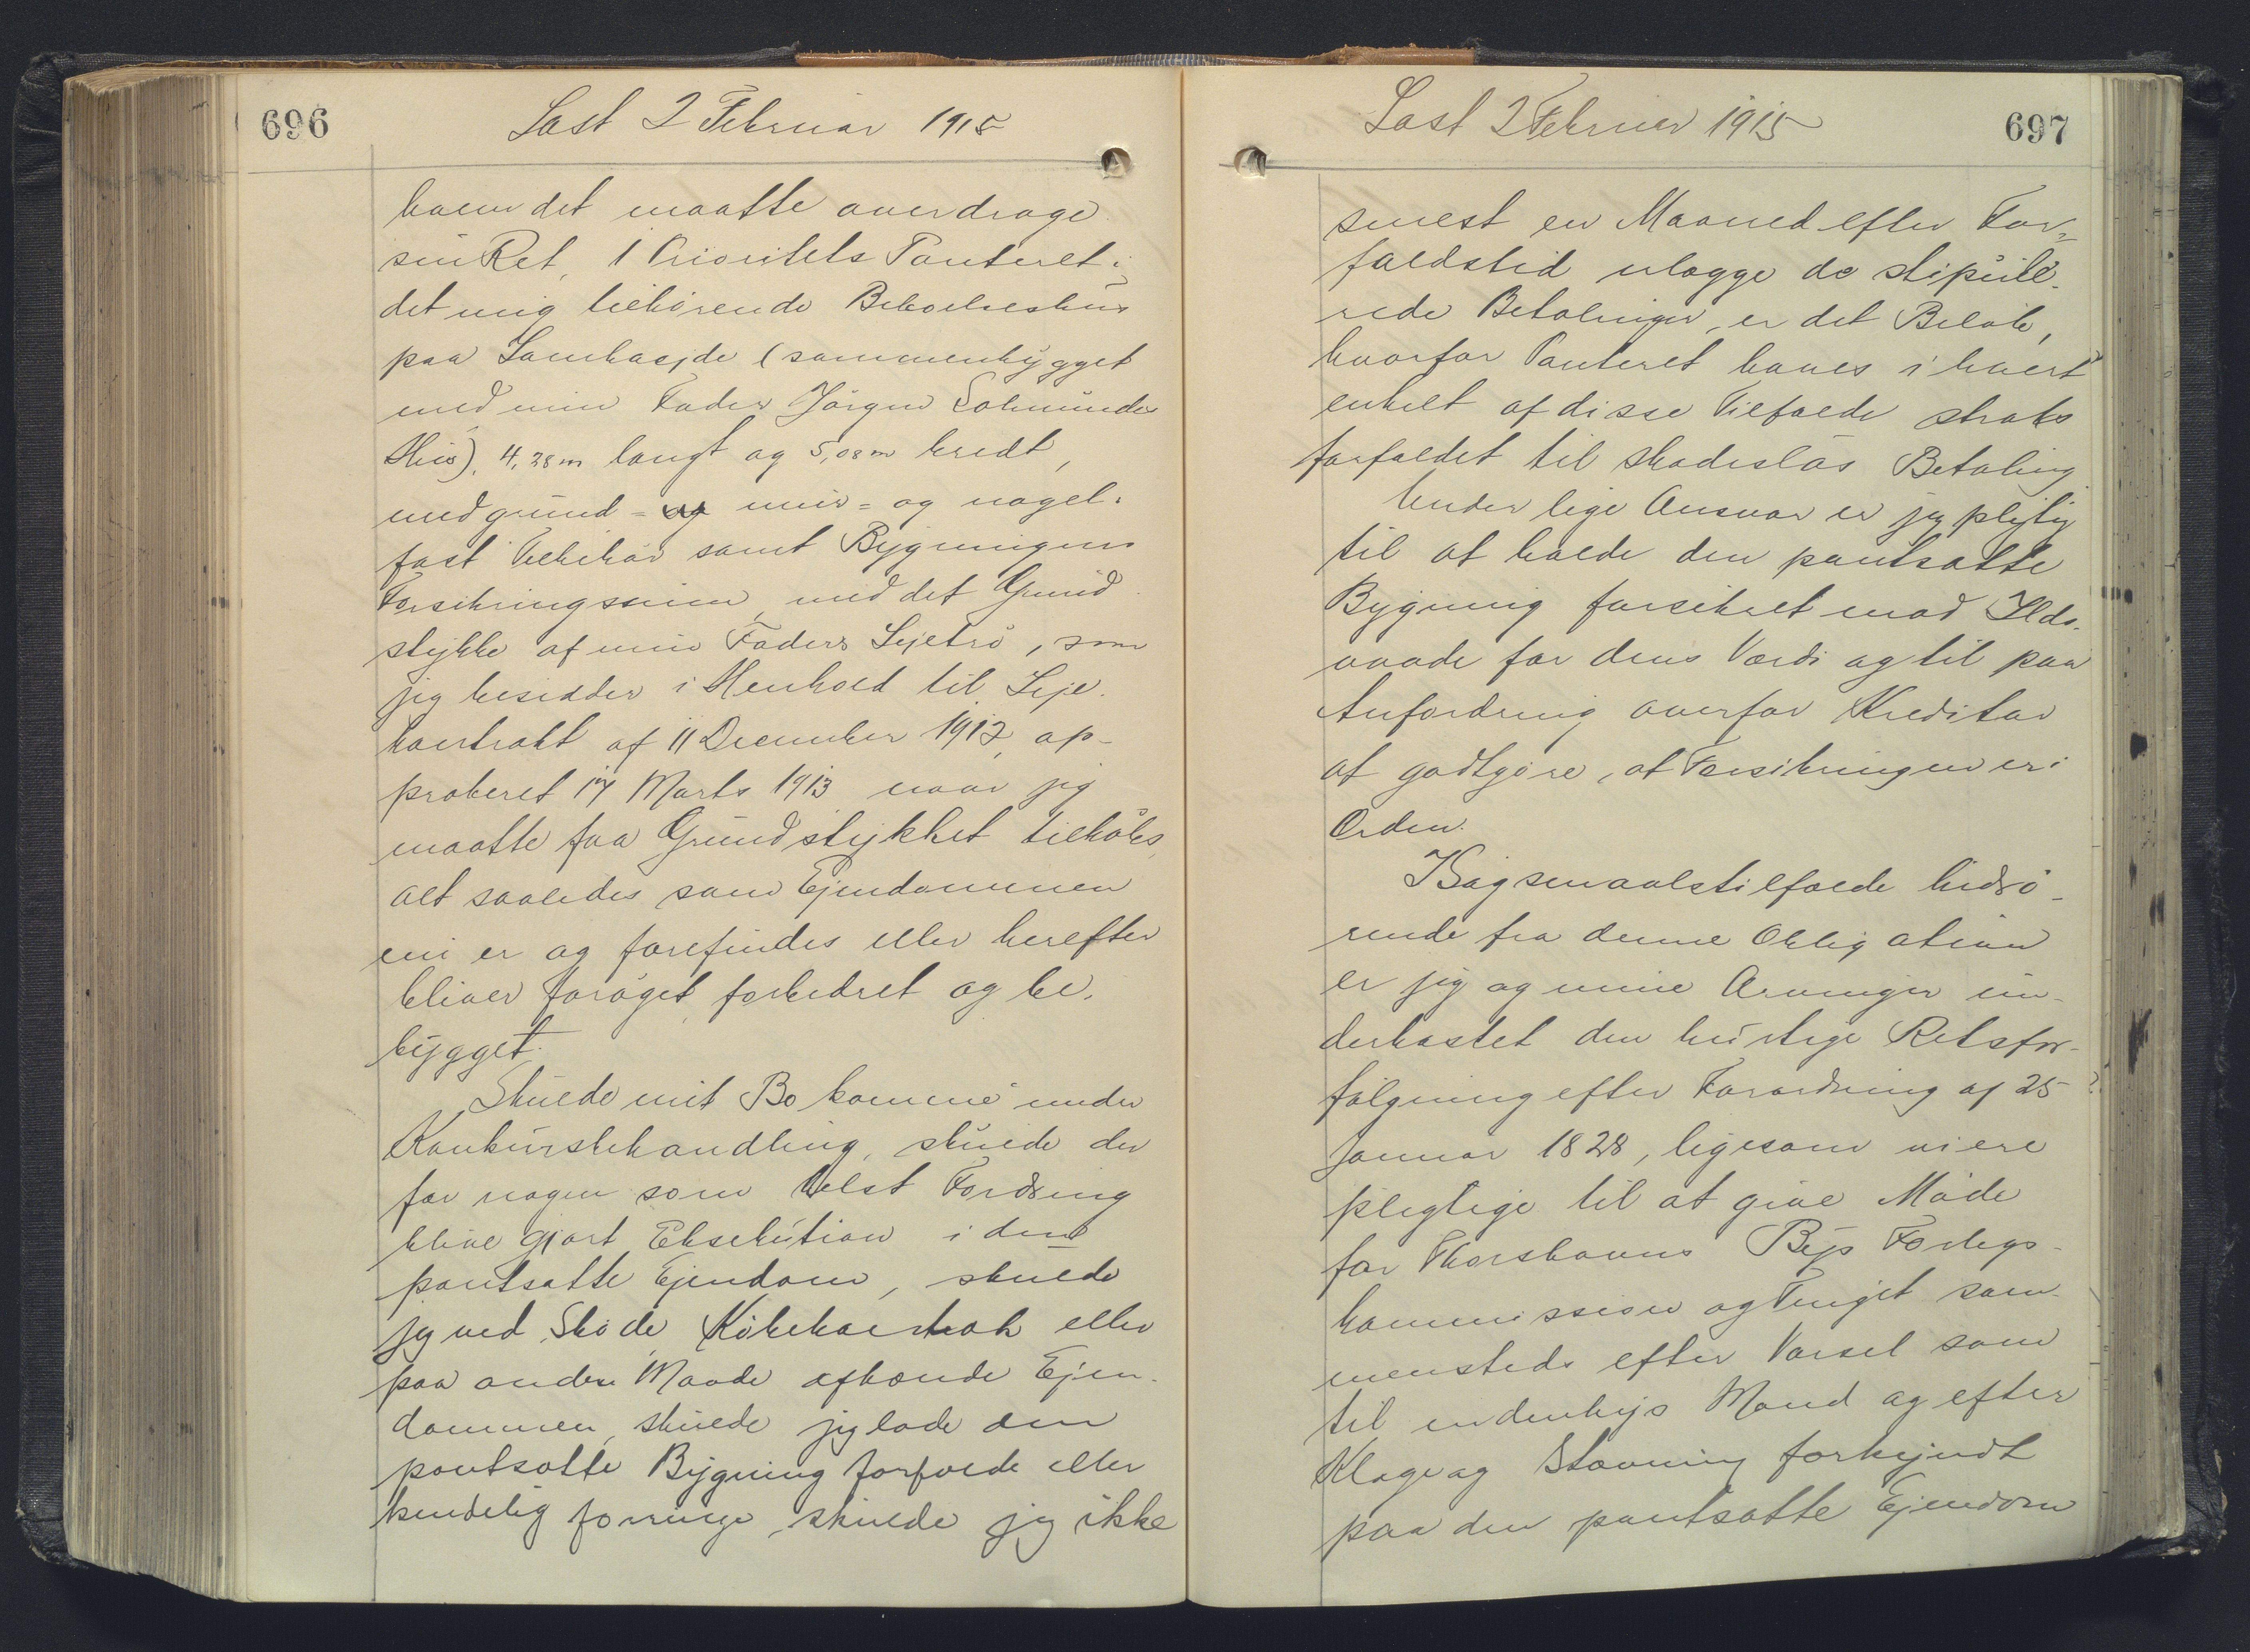 696
Læst 2 Februar 1915
hvem det maatte overdrage
sin Ret, 1 Prioritets Panteret i
det mig tilhørende Beboelseshus
paa Sambagjde (sammenbygget
med min Fader Jørgen
Hus), 4,28 m langt og 5,08 m bredt,
med grund= og mur= og nagel=
fast Tilbehør samt Bygningens
Forsikringssum, med det Grund
stykke af min Faders Lejetrö, som
jeg besidder i Henhold til Leje-
kontrakt af 11 December 1912, ap-
proberet 17 Marts 1913 naar jeg
maatte faa Grundstykket tilkøbs,
alt saaledes som Ejendommen
nu er og forefindes eller herefter
bliver forøget, forbedret og be-
bygget.
Skulde mit Bo komme under
Konkursbehandling, skulde der
for nogen som helst Fordring
blive gjort Eksekution i den
pantsatte Ejendom, skulde
jeg ved Skøde, Købekontrak eller
paa anden Maade afhænde Ejen-
dommen, skulde jeg lade den
pantsatte Bygning forfalde eller
kendelig forringe, skulde jeg ikke
Læst 2 Februar 1915
697
senest en Maaned efter For=
faldstid erlægge de stipule-
rede Betalinger, er det Beløb,
hvorfor Panteret haves i hvert
enkelt af disse Tilfælde straks
forfaldet til skadesløs Betaling
Under lige Ansvar er jeg pligtig
til at holde den pantsatte
Bygning forsikret mod Ilds-
vaade for dens Værdi og til paa
Anfordring overfor Kreditor
at godtgøre, at Forsikringen er i
Orden.
I Søgsmaalstilfælde hidrø-
rende fra denne Obligation
er jeg og mine Arvinger un-
derkastet den hurtige Retsfor-
følgning efter Forordning af 25
Januar 1828, ligesom vi ere
pligtige til at give Møde
for Thorshavns Bys Forligs-
kommission og Tinget sam-
mensteds efter Varsel som
til indenbys Mand og efter
Klage og Stævning forkyndt
paa den pantsatte Ejendom